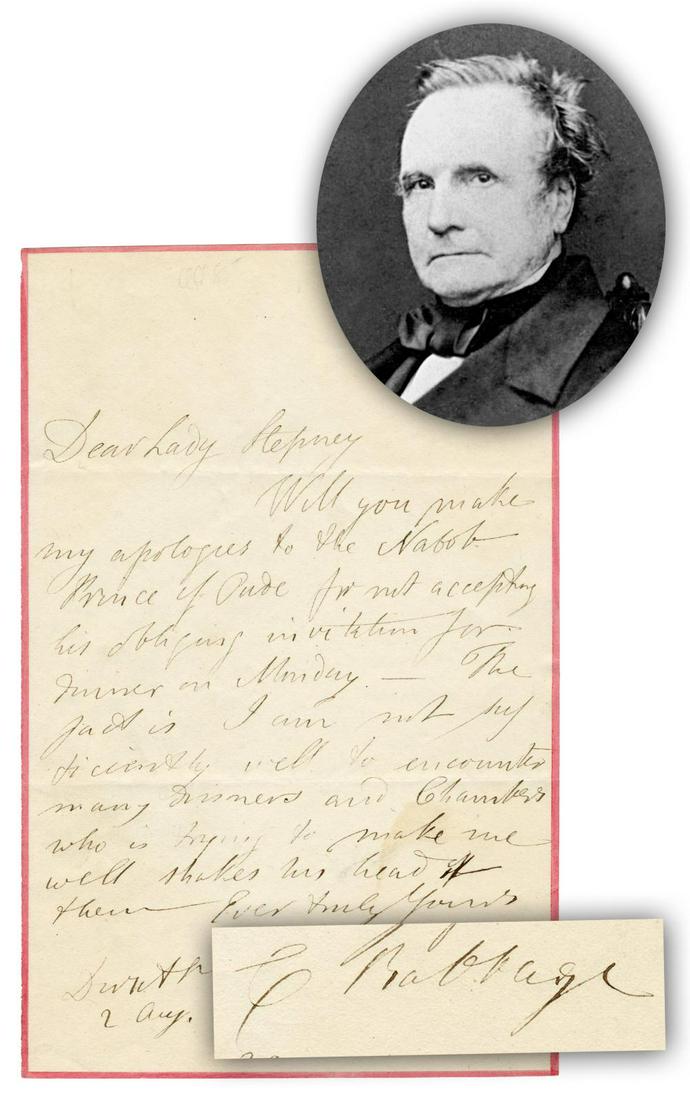 Dear Lady Stepney
Will you make
my apologies to the Nabob
Prince of Oude for not accepting
his obliging invitation for
dinner on Monday. — The
fact is I am not suf
ficiently well to encounter
many dinners and Chambers
who is trying to make me
well shakes his head at
them — Ever truly Yours
C Babbage
2 Aug.